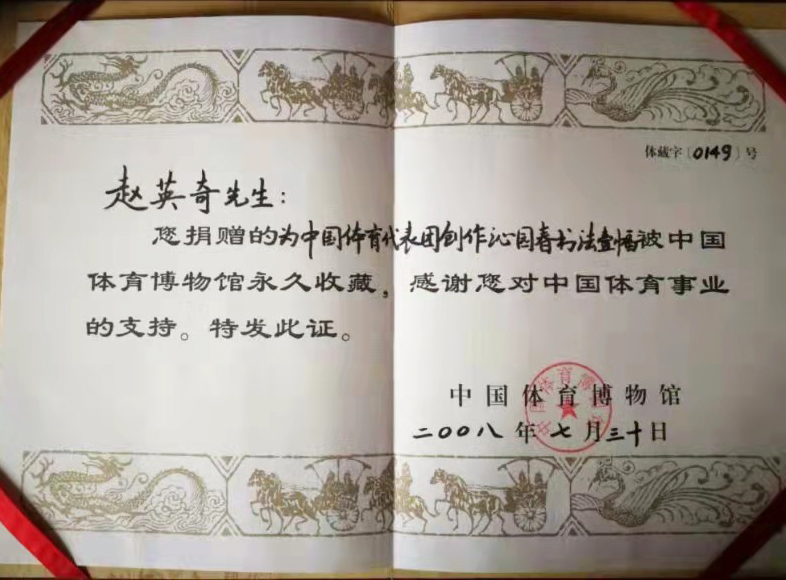 体藏字〔0149〕号
赵英奇先生：
您捐赠的为中国体育代表团创作沁园春书法壹幅被中国
体育博物馆永久收藏，感谢您对中国体育事业
的支持。特发此证。
中国体育博物馆
二00八年七月三十日